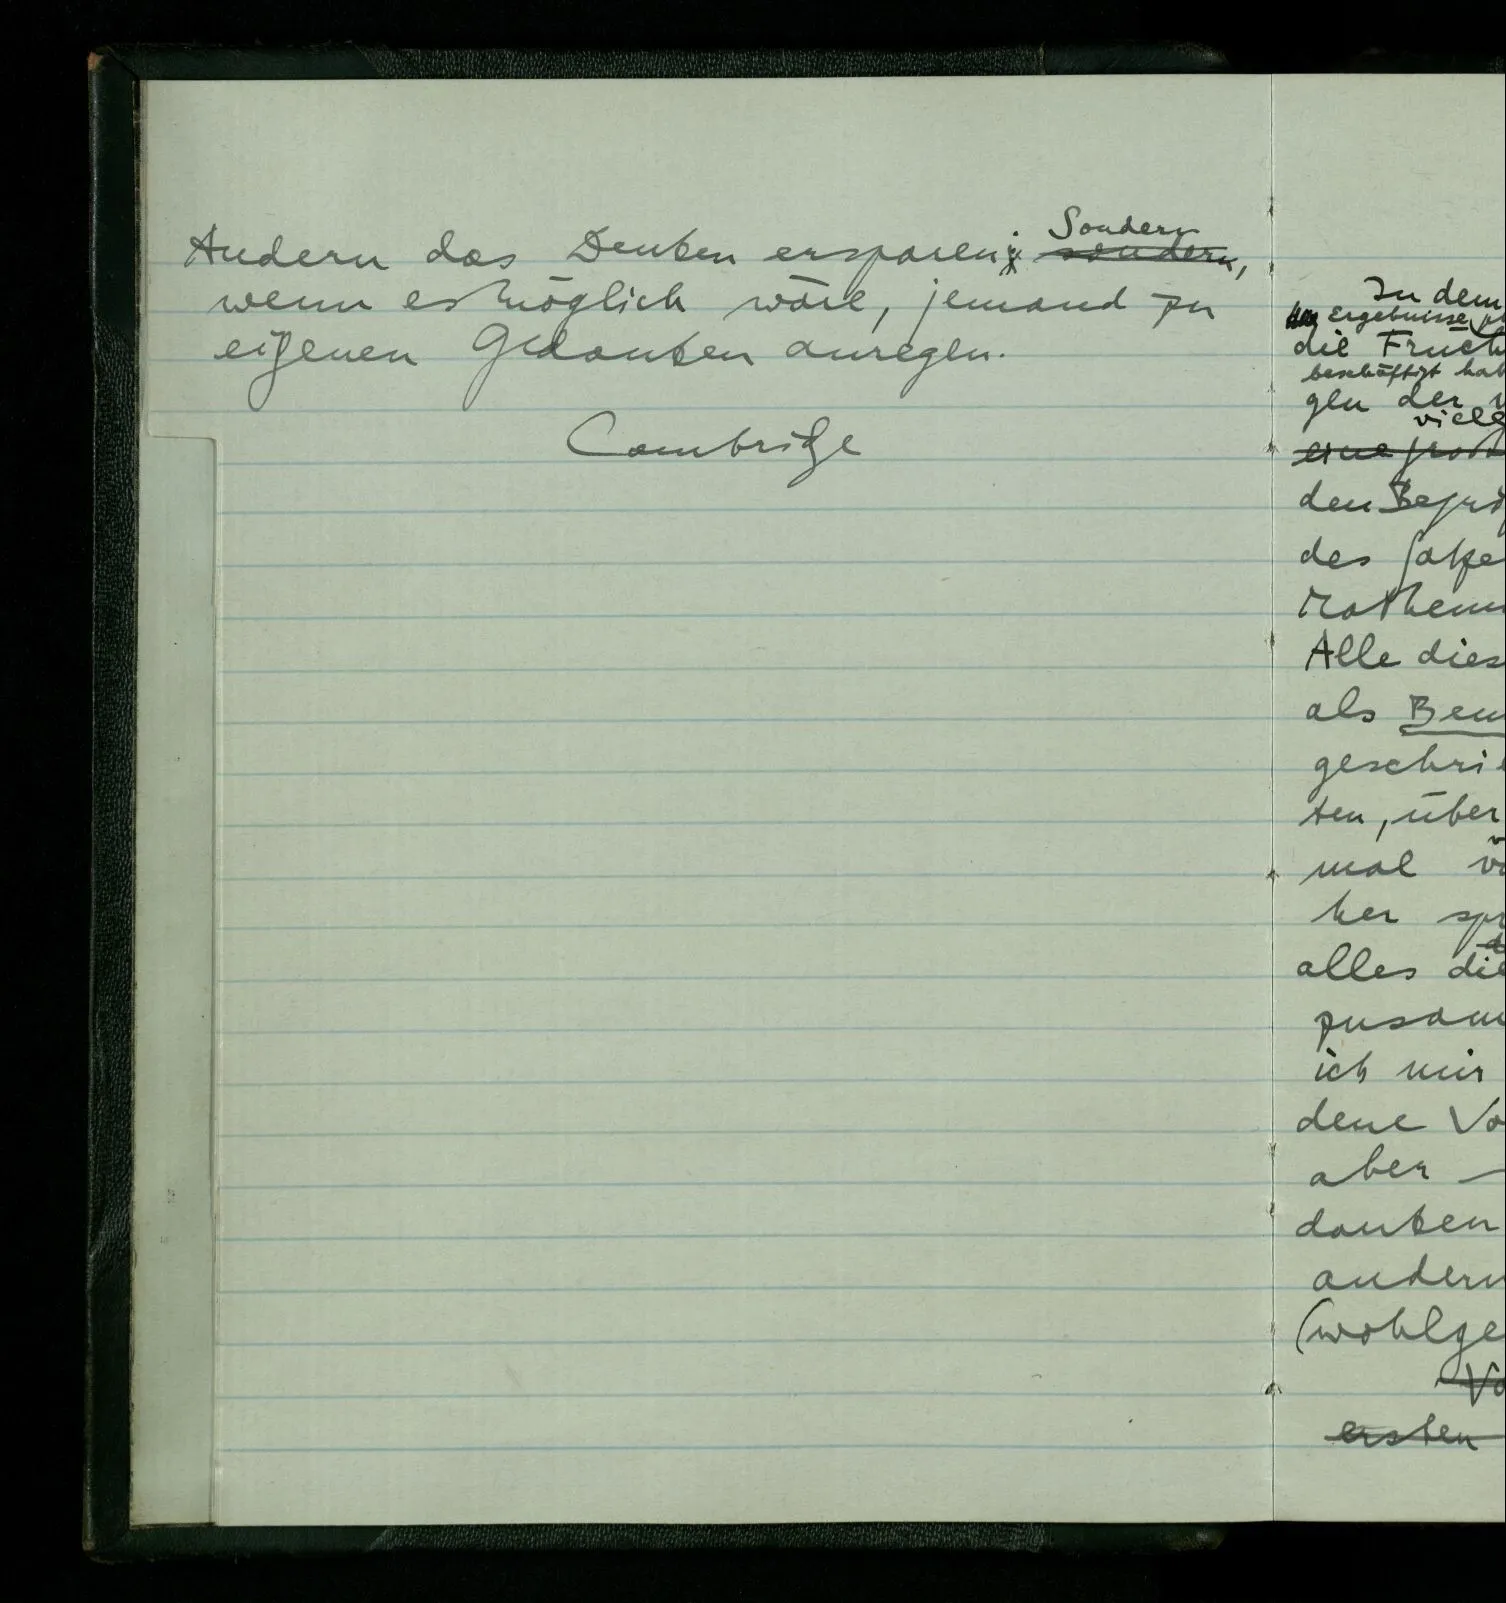 Sondern
Andern das Denken ersparen; sondern,
wenn es möglich wäre, jemand zu
eigenen Gedanken anregen.
Cambridge
In dem
Ergebnisse
die Frucht
beschäftigt hab
gen der v
viele
eine groß
den Begri
des Satze
Mathem
Alle dies
als Bem
geschrie
ten, über
mal
her spr
alles die
zusam
ich mir
dene Vo
aber —
danken
andern
(wohlge
Vo
ersten